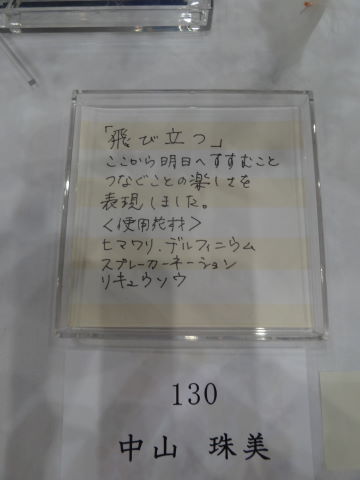 「飛び立つ」
ここから明日へすすむこと
つなぐことの楽しさを
表現しました。
<使用花材>
ヒマワリ、デルフィニウム
スプレーカーネーション
リキュウソウ
130
中山 珠美